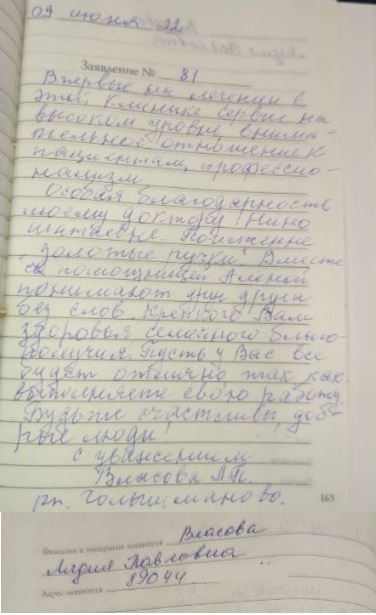 09 июня 22
Заявление № 81
Впервые на лечении в
этой клинике. Сервис на
высоком уровне, внима-
тельное отношение к
пациентам, професси-
нализм.
Особая благодарность
моему доктору Нино
Поистине
золотые ручки. Вместе
с помощницей Аленой
понимают друг друга
без слов. Крепкого Вам
здоровья семейного благо-
получия. Пусть у Вас все
будет отлично так как
выполняете свою работу.
Будьте счастливы, доб-
рые люди!
С уважением
Власова Л.П.
рп. Голышманово.
163
Фамилия и инициалы заявителя Власова
Лидия Павловна
Адрес заявителя 89044